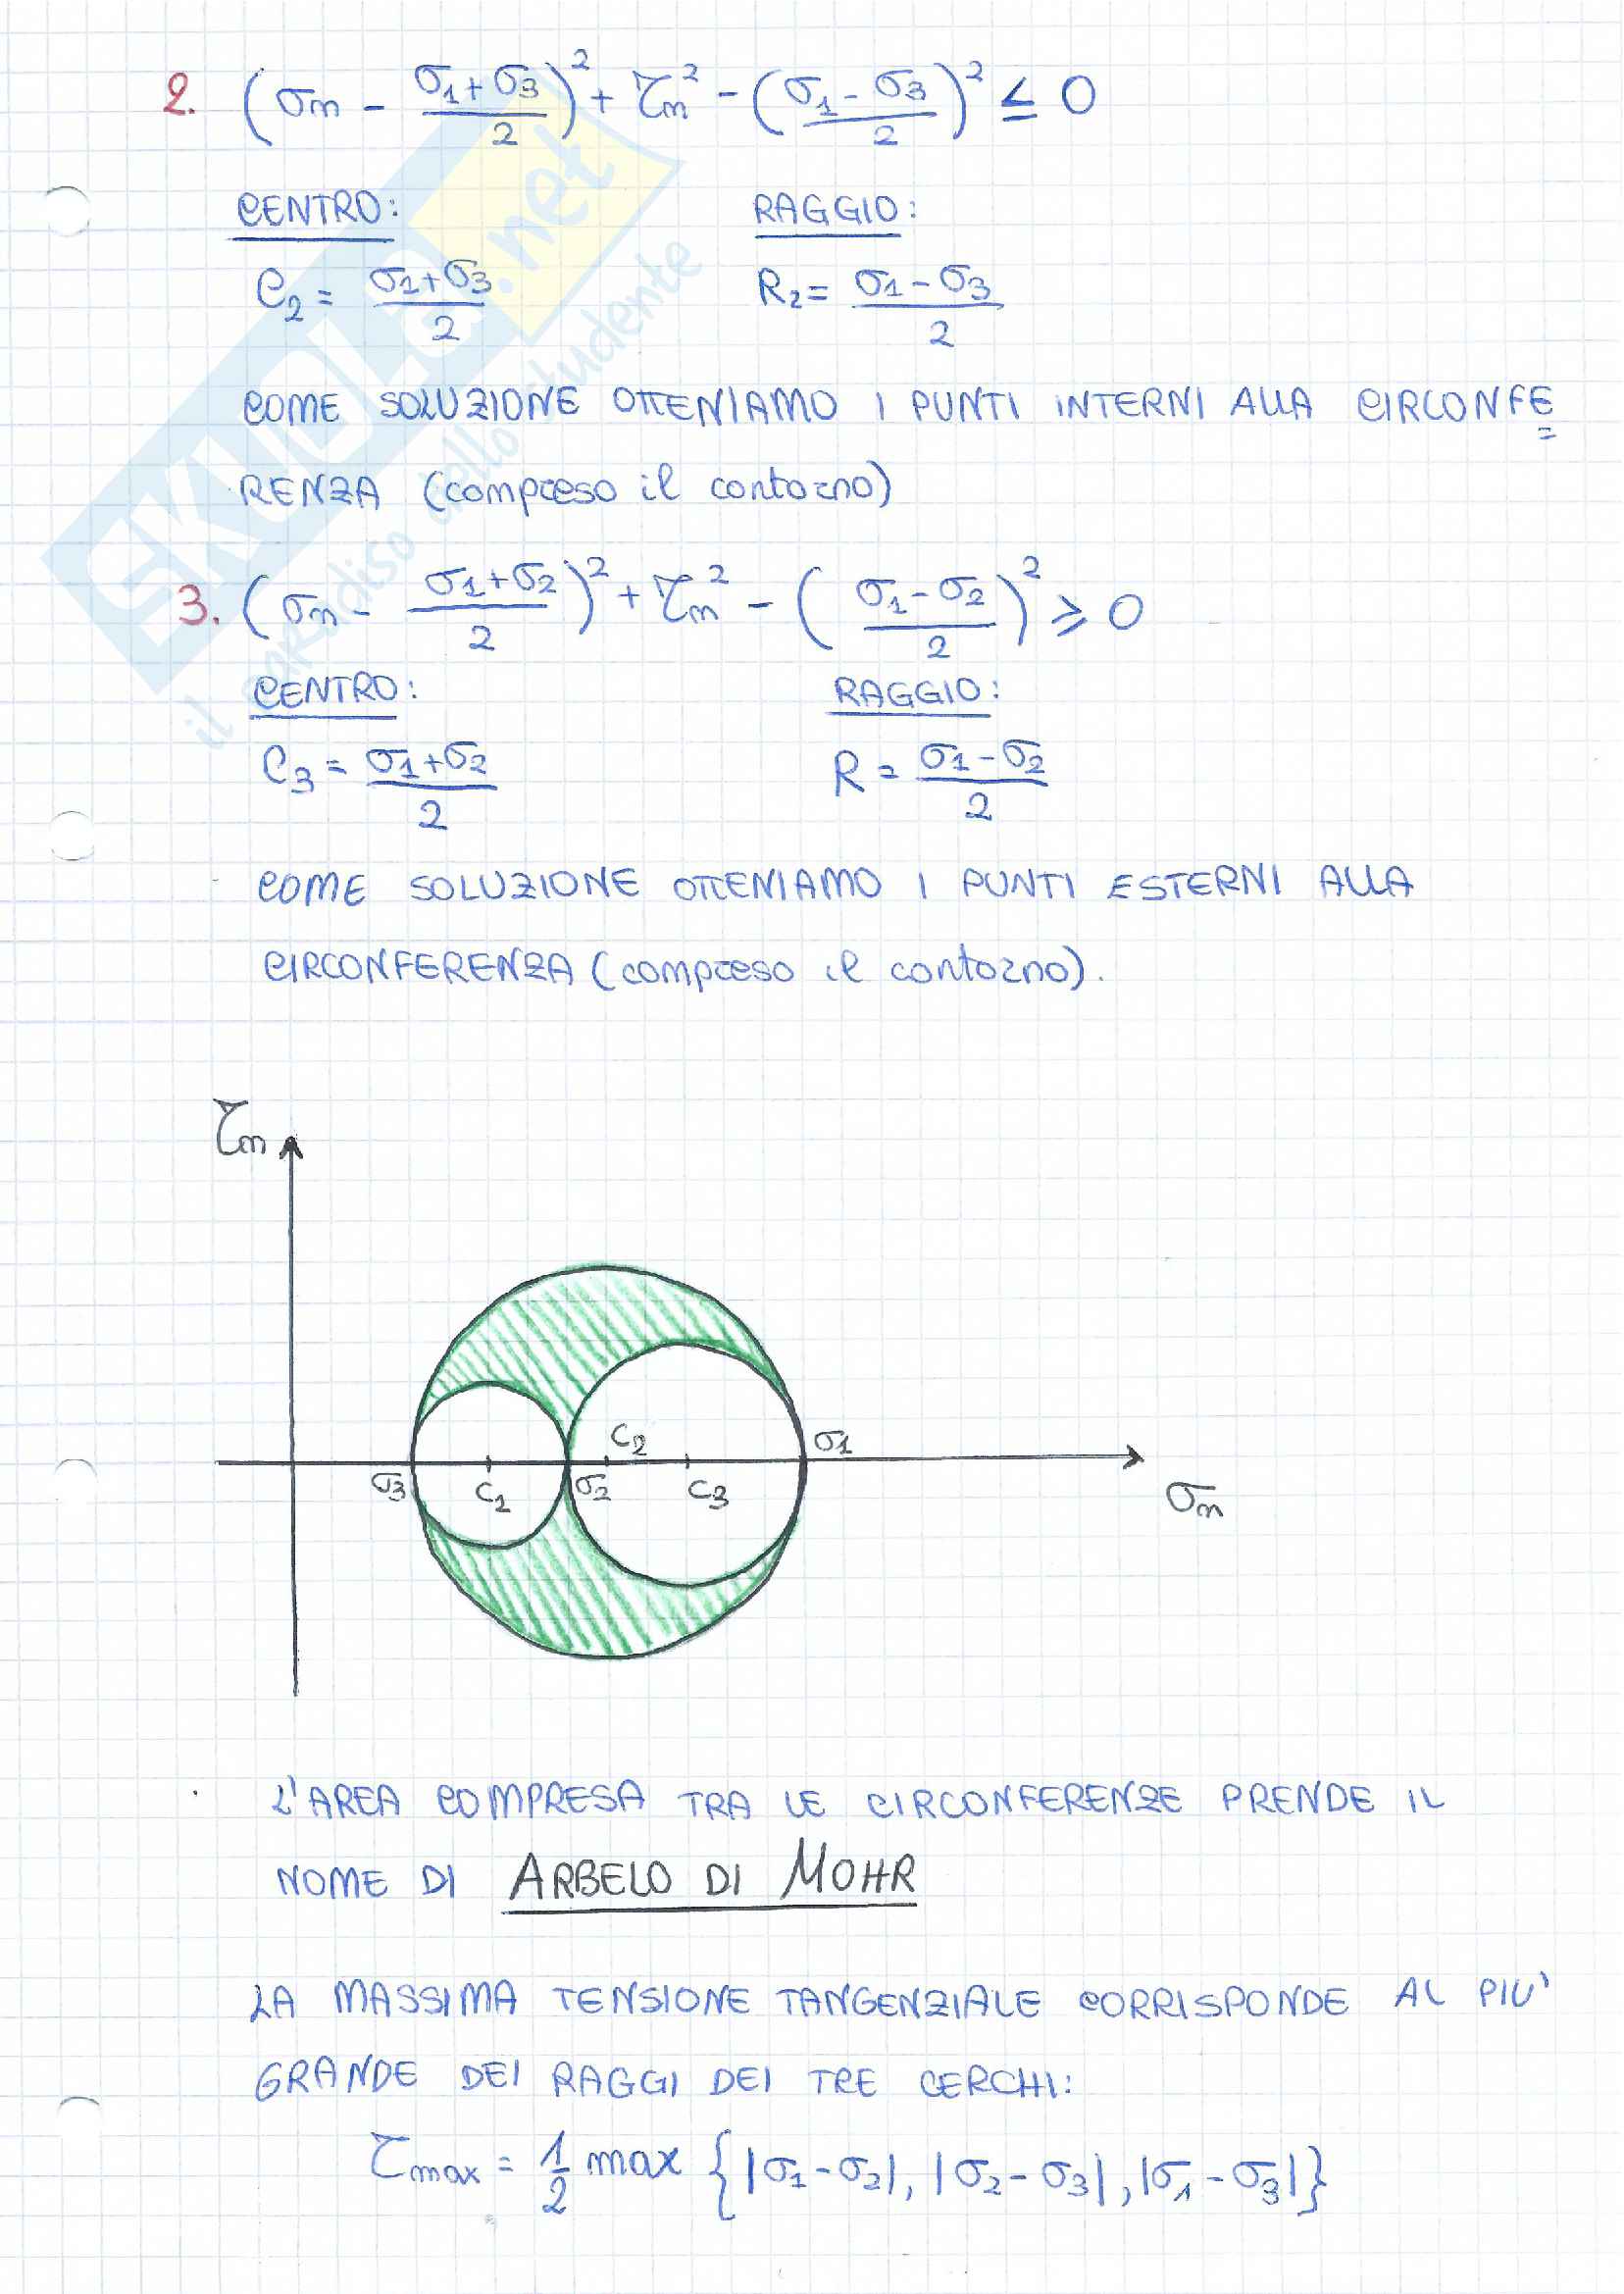 2. (σn - (σ1+σ3)/2)² + τn² - ((σ1-σ3)/2)² ≤ 0
CENTRO: RAGGIO:
C2 = (σ1+σ3)/2 R2 = (σ1-σ3)/2
COME SOLUZIONE OTTENIAMO I PUNTI INTERNI ALLA CIRCONFE=
RENZA (compreso il contorno)
3. (σn - (σ1+σ2)/2)² + τn² - ((σ1-σ2)/2)² ≥ 0
CENTRO: RAGGIO:
C3 = (σ1+σ2)/2 R = (σ1-σ2)/2
COME SOLUZIONE OTTENIAMO I PUNTI ESTERNI ALLA
CIRCONFERENZA (compreso il contorno).
τn
C2 σ1
σ3 C1 σ2 C3 σn
L'AREA COMPRESA TRA LE CIRCONFERENZE PRENDE IL
NOME DI ARBELO DI MOHR
LA MASSIMA TENSIONE TANGENZIALE CORRISPONDE AL PIU'
GRANDE DEI RAGGI DEI TRE CERCHI:
τmax = 1/2 max {|σ1-σ2|, |σ2-σ3|, |σ1-σ3|}
SKUOLA.net
il paradiso dello studente